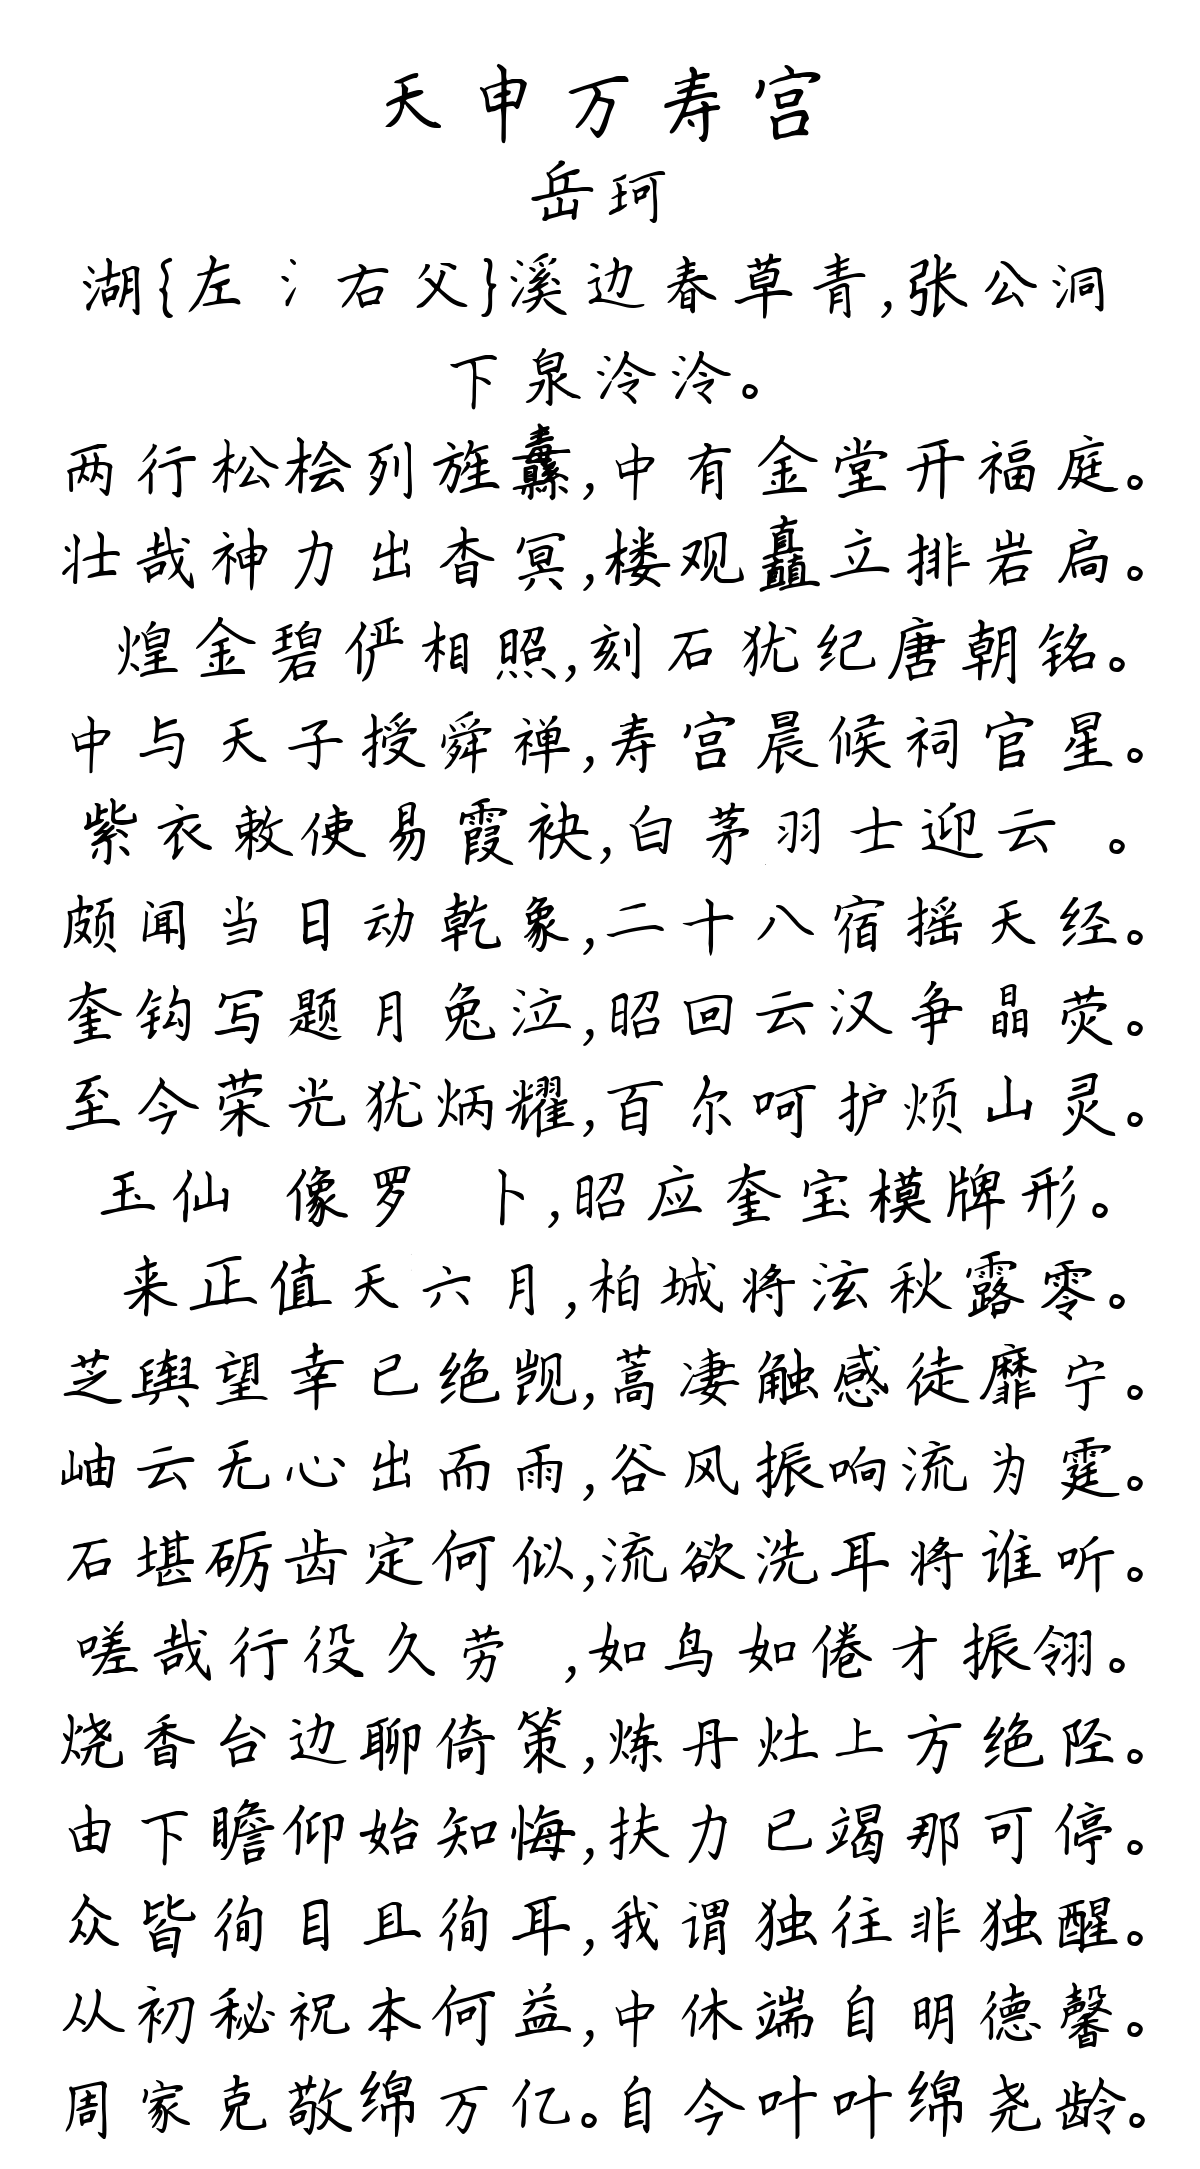 天申万寿宫
岳珂
湖{左氵右父}溪边春草青,张公洞
下泉泠泠。
两行松桧列旌纛,中有金堂开福庭。
壮哉神力出杳冥,楼观矗立排岩扃。
煌金碧俨相照,刻石犹纪唐朝铭。
中与天子授舜禅,寿宫晨候祠官星。
紫衣敕使易霞袂,白茅羽士迎云 。
颇闻当日动乾象,二十八宿摇天经。
奎钩写题月兔泣,昭回云汉争晶荧。
至今荣光犹炳耀,百尔呵护烦山灵。
玉仙 像罗 卜,昭应奎宝模牌形。
来正值天六月,柏城将泫秋露零。
芝舆望幸已绝觊,蒿凄触感徒靡宁。
岫云无心出而雨,谷风振响流为霆。
石堪砺齿定何似,流欲洗耳将谁听。
嗟哉行役久劳 ,如鸟如倦才振翎。
烧香台边聊倚策,炼丹灶上方绝陉。
由下瞻仰始知悔,扶力已竭那可停。
众皆徇目且徇耳,我谓独往非独醒。
从初秘祝本何益,中休端自明德馨。
周家克敬绵万亿。自今叶叶绵尧龄。